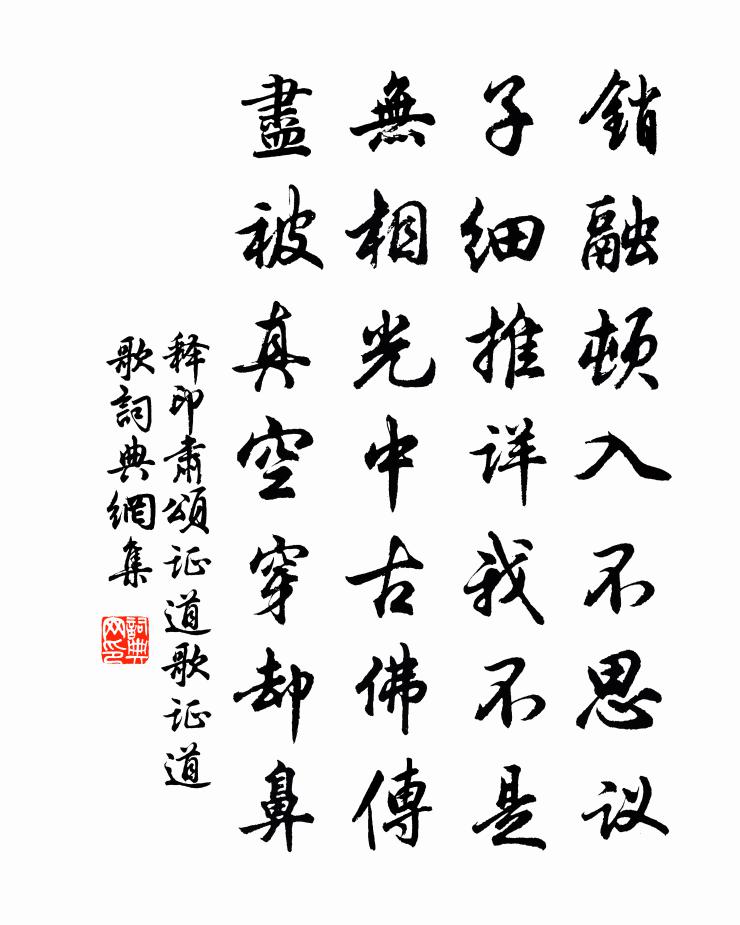 銷融頓入不思议
子细推详我不是
無相光中古佛傳
盡被真空穿却鼻
释印肃颂证道歌证道
歌詞典網集
詞典网印